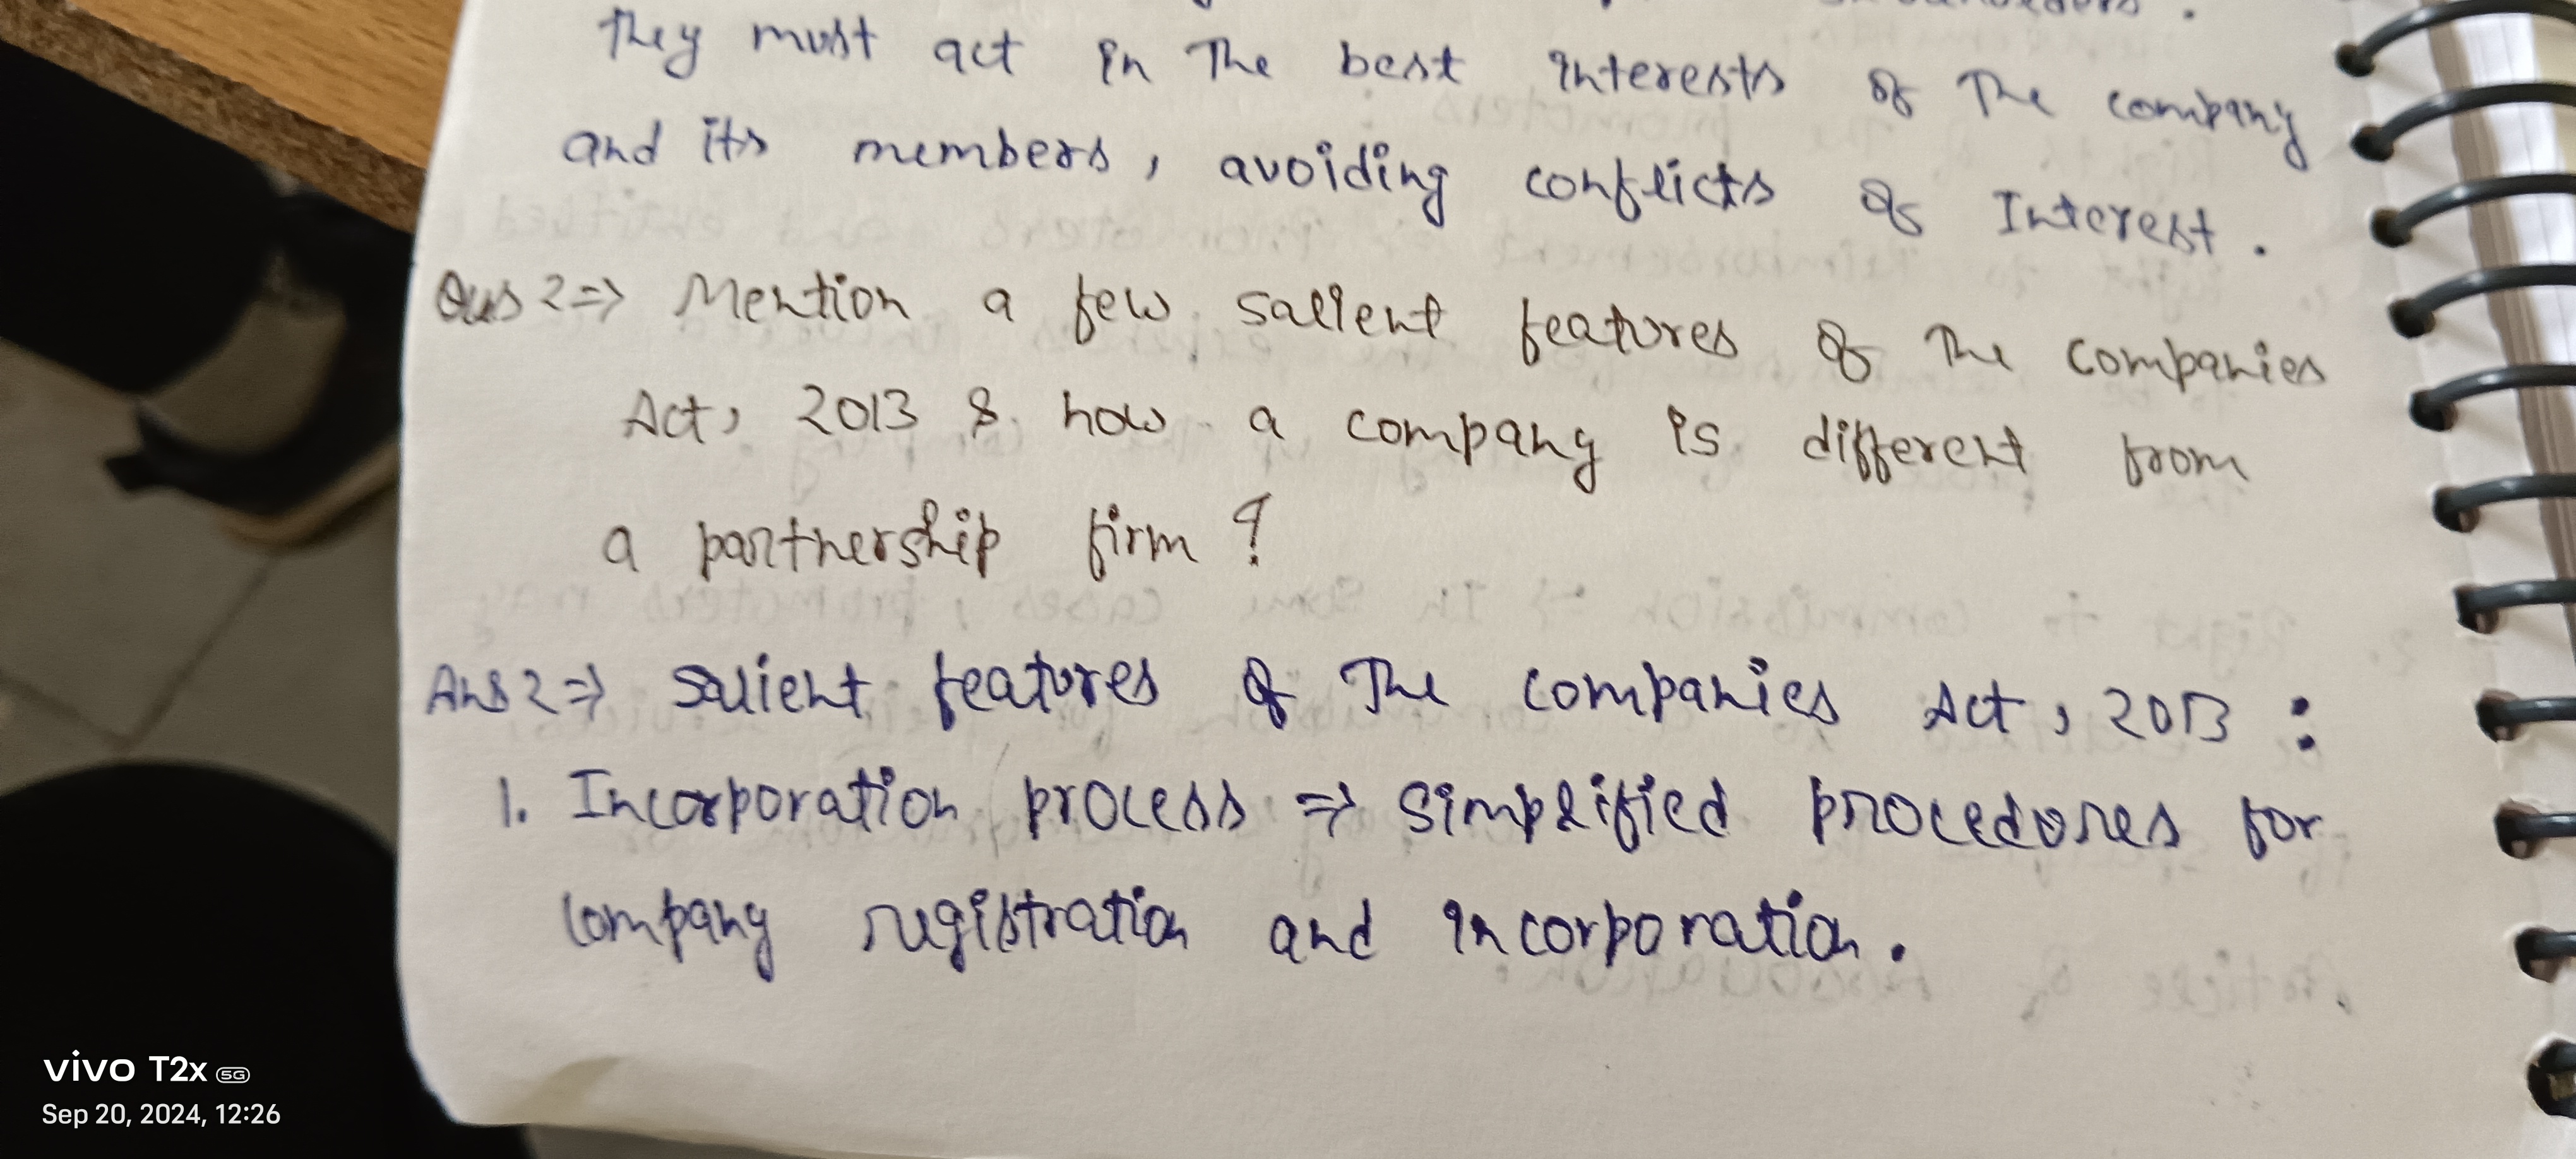 They must act in The best interests of The company
and its members, avoiding conflicts of Interest.
Qus 2=> Mention a few salient features of The companies
Act, 2013 & how a company is different from
a partnership firm?
Ans 2=> Salient features of The companies Act, 2013 :
1. Incorporation process => simplified procedures for
company registration and incorporation.
vivo T2x 5G
Sep 20, 2024, 12:26